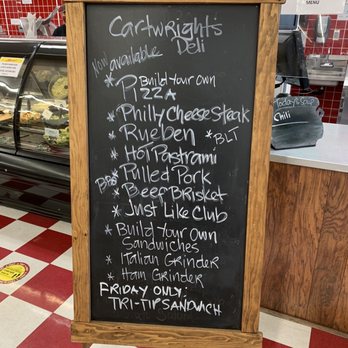 Cartwright's
Deli
Now available
* Build your own
Pizza
* Philly Cheese Steak
* Rueben
* BLT
* Hot Pastrami
BBQ * Pulled Pork
* Beef Brisket
* Just Like Club
* Build Your Own
Sandwiches
* Italian Grinder
* Ham Grinder
FRIDAY ONLY:
TRI-TIP SANDWICH
MENU
Today's Soup
Chili